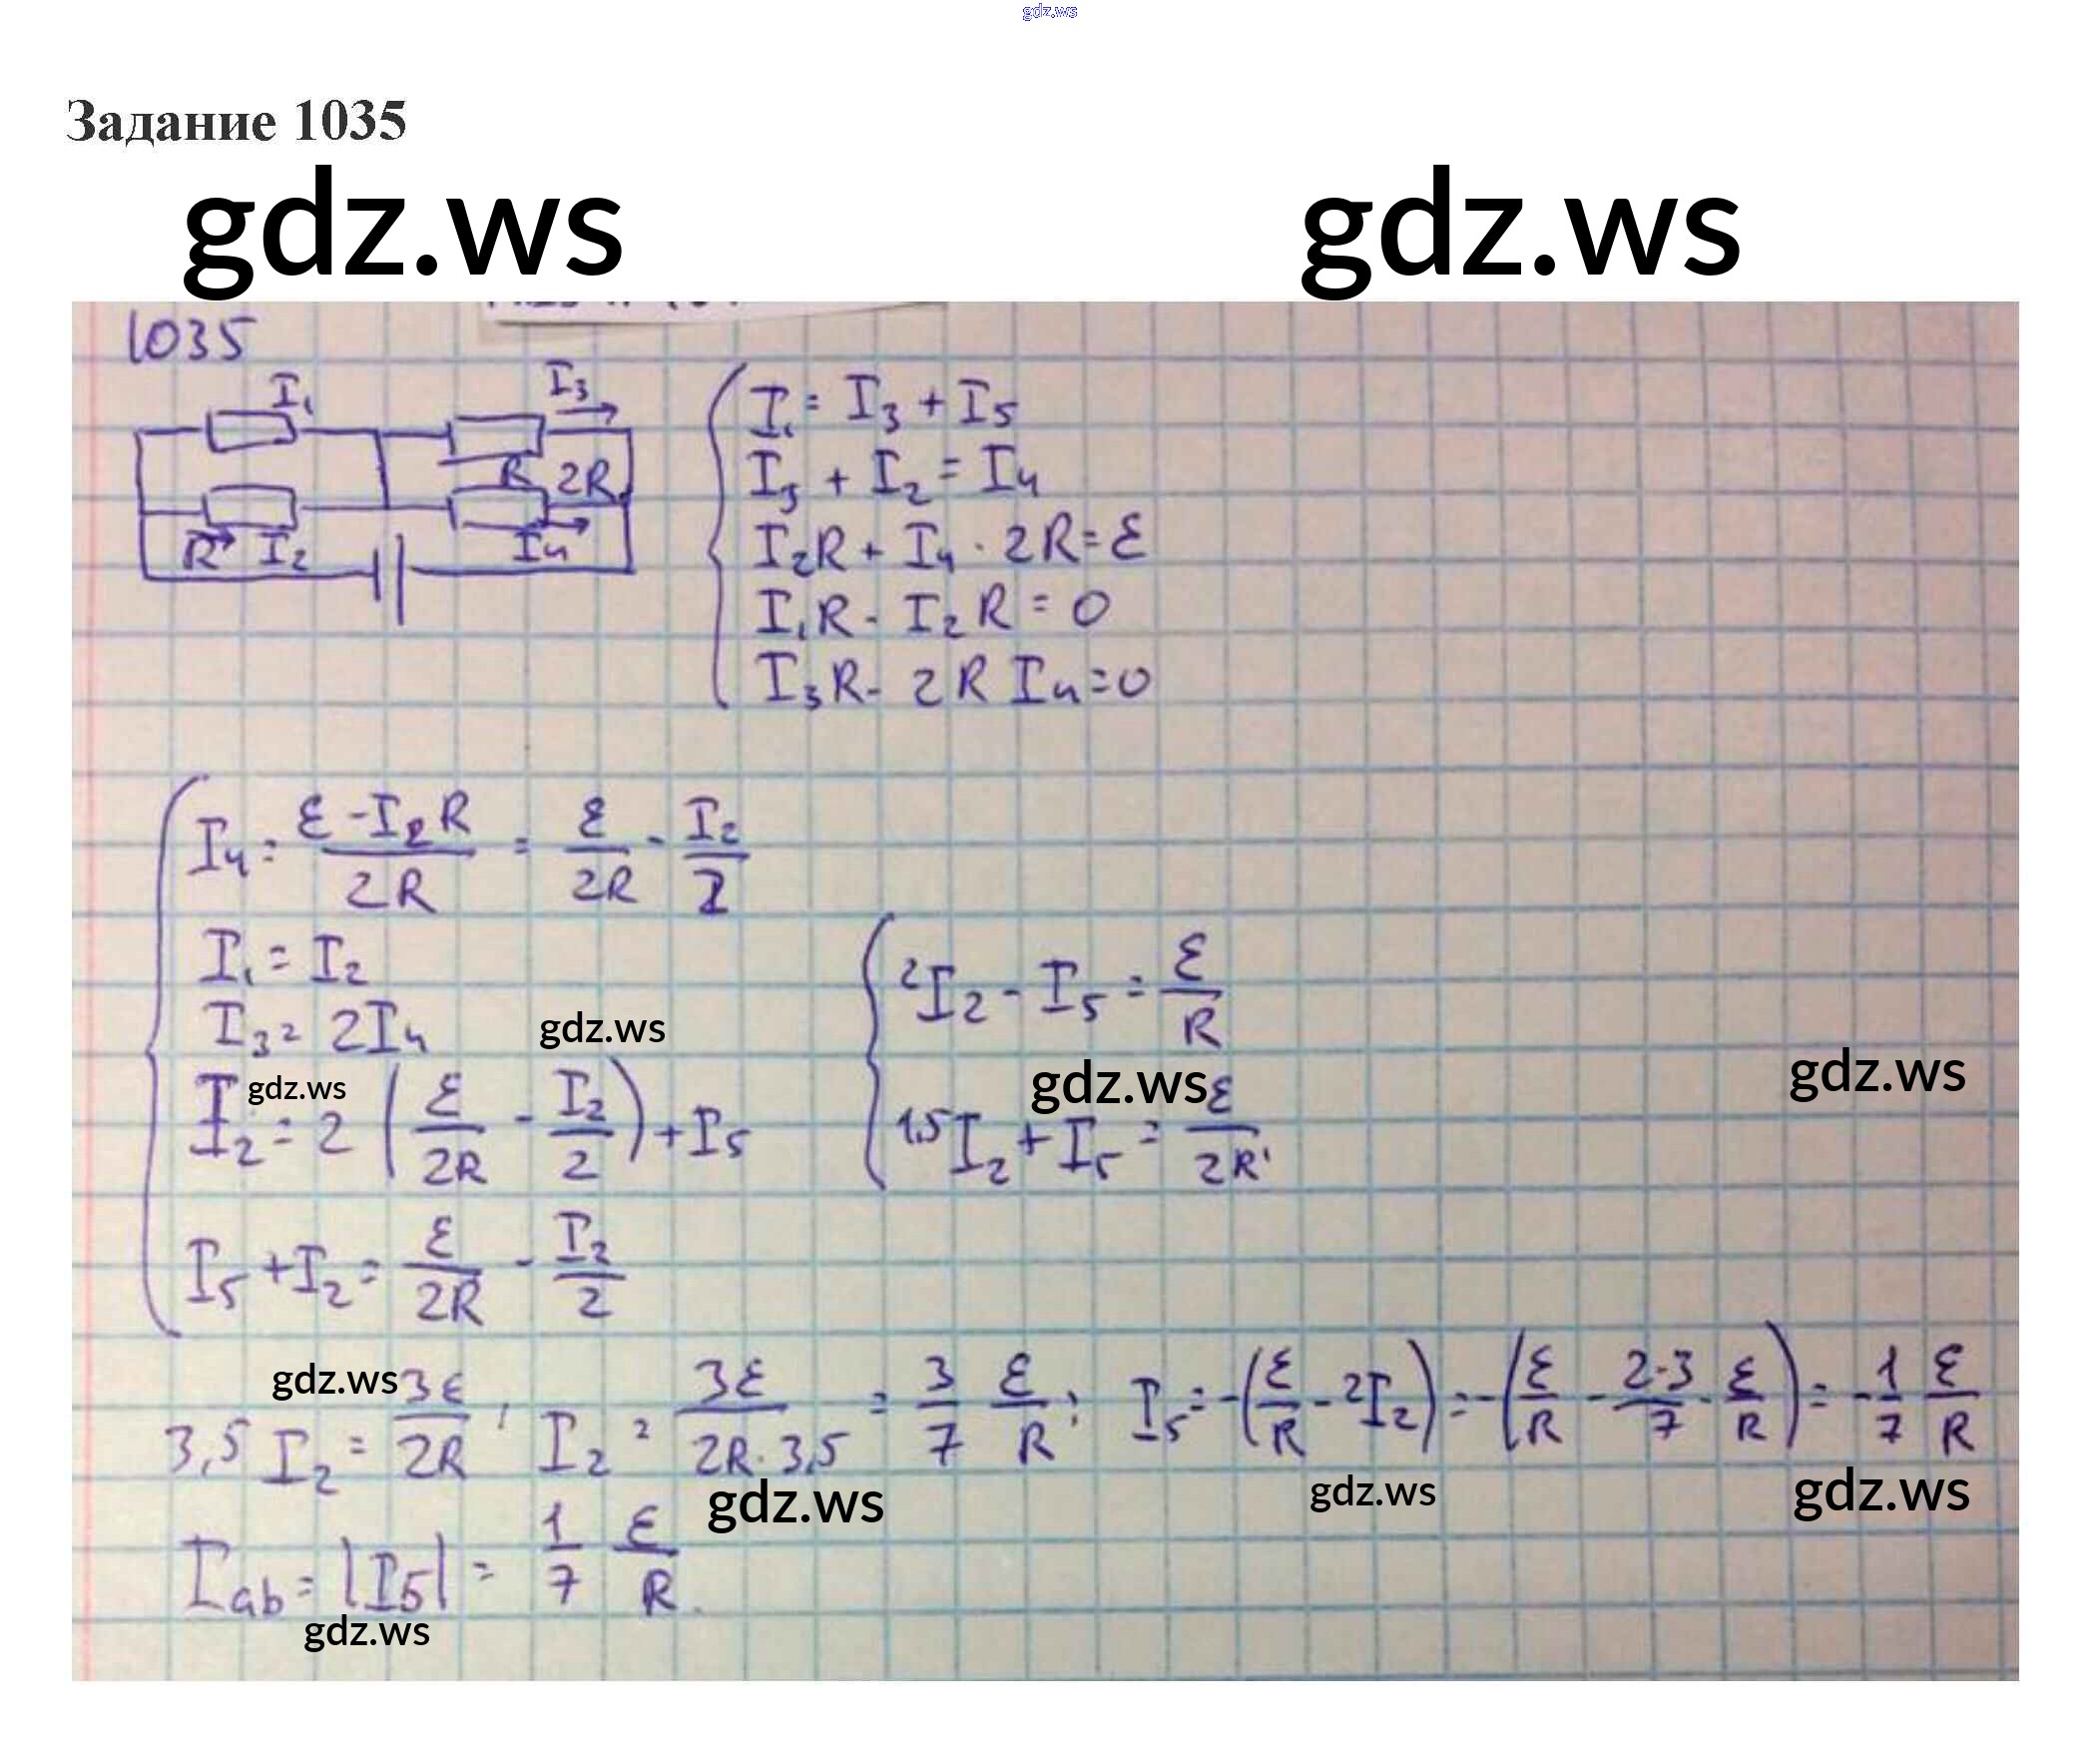 gdz.ws
Задание 1035
gdz.ws gdz.ws
1035
I₁ I₃
R 2R
R I₂ I₄
I₁ = I₃ + I₅
I₃ + I₂ = I₄
I₂R + I₄ · 2R = ε
I₁R - I₂R = 0
I₃R - 2R I₄ = 0
I₄ = (ε - I₂R)/2R = ε/2R - I₂/2
I₁ = I₂
I₃ = 2I₄
gdz.ws
I₂ = 2 (ε/2R - I₂/2) + I₅
gdz.ws
I₅ + I₂ = ε/2R - I₂/2
2I₂ - I₅ = ε/R
gdz.ws
gdz.ws
1,5 I₂ + I₅ = ε/2R
gdz.ws
3,5 I₂ = 3ε/2R ; I₂ = 3ε/(2R · 3,5) = 3/7 ε/R ; I₅ = -(ε/R - 2I₂) = -(ε/R - 2·3/7 · ε/R) = - 1/7 ε/R
gdz.ws gdz.ws gdz.ws
I ab = |I₅| = 1/7 ε/R.
gdz.ws